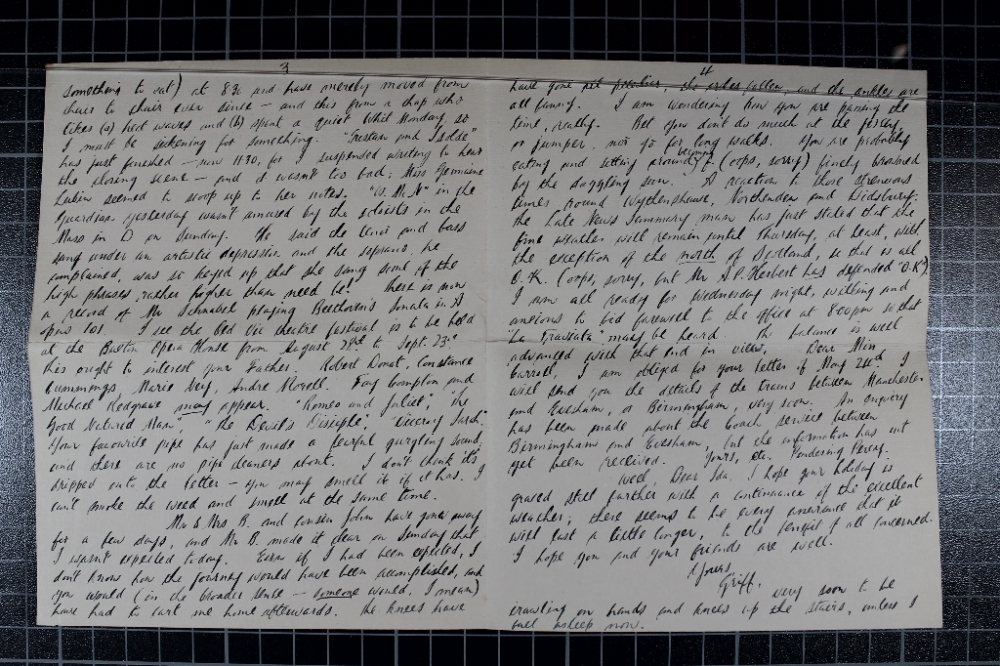 3
something to eat) at 8.30 and have merely moved from
chair to chair ever since – and this from a chap who
likes (a) heat waves and (b) spent a quiet Whit Monday, so
I must be sickening for something. "Tristan und Isolde"
has just finished – now 11.30, for I suspended writing to hear
the closing scene – and it wasn't too bad; Miss Germaine
Lubin seemed to swoop up to her notes. "W.M.N" in the
Guardian yesterday wasn't amused by the soloists in the
Mass in D on Sunday. He said the tenor and bass
sang under an artistic depression and the soprano, he
complained, was so keyed up that she sang some of the
high phrases "rather higher than need be". There is now
a record of Mr Schnabel playing Beethoven's Sonata in A
opus 101. I see the Old Vic theatre festival is to be held
at the Buxton Opera House from August 28th to Sept. 23rd.
This ought to interest your Father. Robert Donat, Constance
Cummings, Marie Ney, Andre Morell. Fay Compton and
Michael Redgrave may appear. "Romeo and Juliet", "The
Good Natured Man", "The Devil's Disciple", "Viceroy Sarah."
Your favourite pipe has just made a fearful gurgling sound,
and there are no pipe cleaners about. I don't think it's
dripped onto the letter – you may smell it if it has. I
can't smoke the weed and smell at the same time.
Mr & Mrs B. and cousin John have gone away
for a few days, and Mr B. made it clear on Sunday that
I wasn't expected today. Even if I had been expected, I
don't know how the journey would have been accomplished, and
you would (in the broader sense – someone would, I mean)
have had to cart me home afterwards. The knees have
4
have gone the arches fallen, and the ankles are
all funny. I am wondering how you are passing the
time, really. Bet you don't do much at the
or jumper, nor go for long walks. You are probably
eating and sitting around, (oops, sorry) finely bronzed becoming
by the dazzling sun. A reaction to those strenuous
times round Wythenshawe, Northenden and Didsbury.
The Late News Summary man has just stated that the
fine weather will remain until Thursday, at least, with
the exception of the north of Scotland, so that is all
O.K. (oops, sorry, but Mr A.P. Herbert has defended "O.K").
I am all ready for Wednesday night, willing and
anxious to bid farewell to the office at 8.00pm so that
"La Traviata" may be heard. The balance is well
advanced with that end in view. Dear Miss
Garrett, I am obliged for your letter of May 24th. I
will send you the details of the trains between Manchester
and Evesham, or Birmingham, very soon. An enquiry
has been made about the coach service between
Birmingham and Evesham, but the information has not
yet been received. Yours, etc. Pondering Percy.
Well, Dear Ida, I hope your holiday is
graced still further with a continuance of the excellent
weather; there seems to be every assurance that it
will last a little longer, to the benefit of all concerned.
I hope you and your friends are well.
Yours,
Griff.
very soon to be
crawling on hands and knees up the stairs, unless I
fall asleep now.